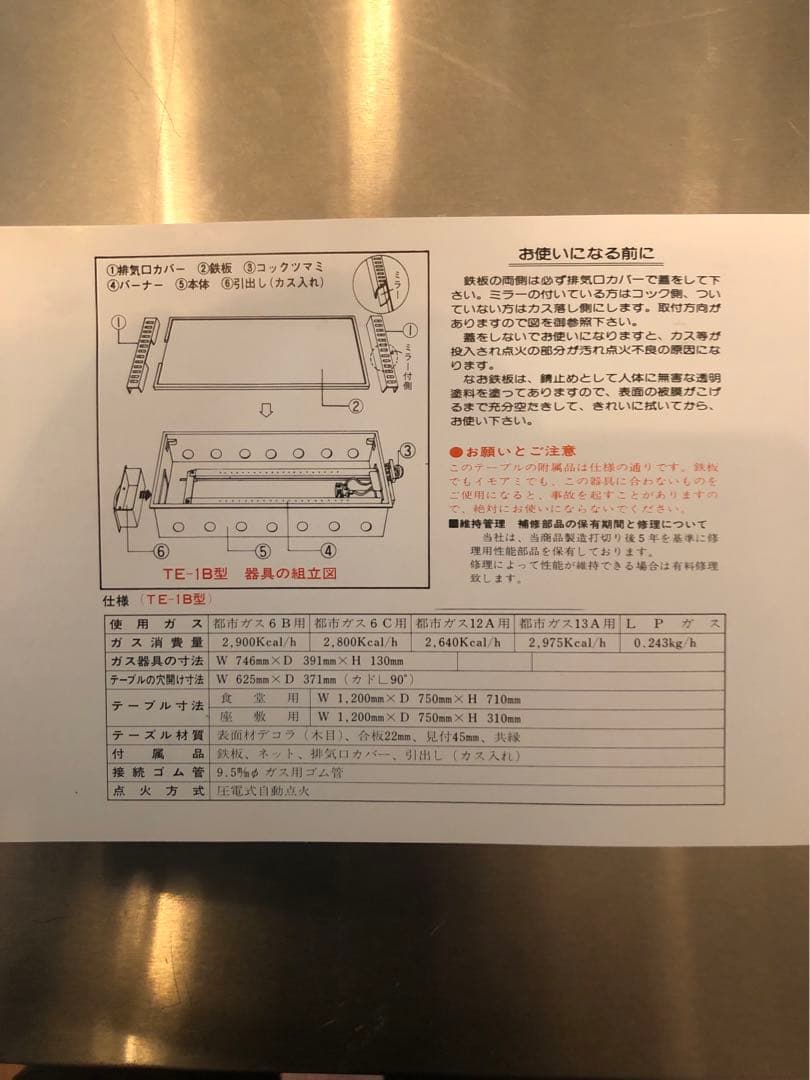 ①排気口カバー ②鉄板 ③コックツマミ
④バーナー ⑤本体 ⑥引出し(カス入れ)
ミラー
①
①
ミラー付側
②
③
⑥
⑤
④
TE-1B型 器具の組立図
お使いになる前に
鉄板の両側は必ず排気口カバーで蓋をして下
さい。ミラーの付いている方はコック側、つい
ていない方はカス落し側にします。取付方向が
ありますので図を御参照下さい。
蓋をしないでお使いになりますと、カス等が
投入され点火の部分が汚れ点火不良の原因にな
ります。
なお鉄板は、錆止めとして人体に無害な透明
塗料を塗ってありますので、表面の被膜がこげ
るまで充分空だきして、きれいに拭いてから、
お使い下さい。
●お願いとご注意
このテーブルの附属品は仕様の通りです。鉄板
でもイモアミでも、この器具に合わないものを
ご使用になると、事故を起すことがありますの
で、絶対にお使いにならないでください。
■維持管理 補修部品の保有期間と修理について
当社は、当商品製造打切り後5年を基準に修
理用性能部品を保有しております。
修理によって性能が維持できる場合は有料修理
致します。
仕様(TE-1B型)
使用ガス 都市ガス6B用 都市ガス6C用 都市ガス12A用 都市ガス13A用 LPガス
ガス消費量 2,900Kcal/h 2,800Kcal/h 2,640Kcal/h 2,975Kcal/h 0.243kg/h
ガス器具の寸法 W 746mm×D 391mm×H 130mm
テーブルの穴開け寸法 W 625mm×D 371mm(カド∟90°)
テーブル寸法 食堂用 W 1,200mm×D 750mm×H 710mm
座敷用 W 1,200mm×D 750mm×H 310mm
テーズル材質 表面材デコラ(木目)、合板22mm、見付45mm、共縁
付属品 鉄板、ネット、排気口カバー、引出し(カス入れ)
接続ゴム管 9.5㎜φ ガス用ゴム管
点火方式 圧電式自動点火